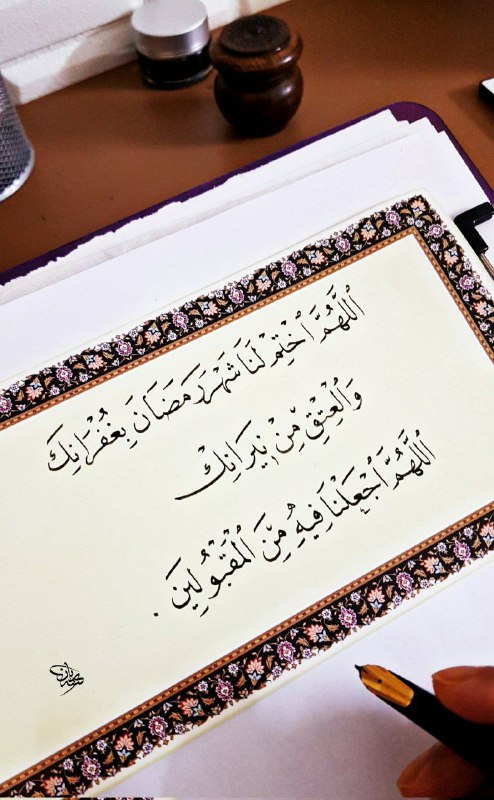 اَللّٰهُمَّ اخْتِمْ لَنَا شَهْرَ رَمَضَانَ بِغُفْرَانِكَ
وَالْعِتْقِ مِّنْ نِيرَانِكْ
اَللّٰهُمَّ اجْعَلْنَا فِيهِ مِّنَ الْمَقْبُولِينَ.